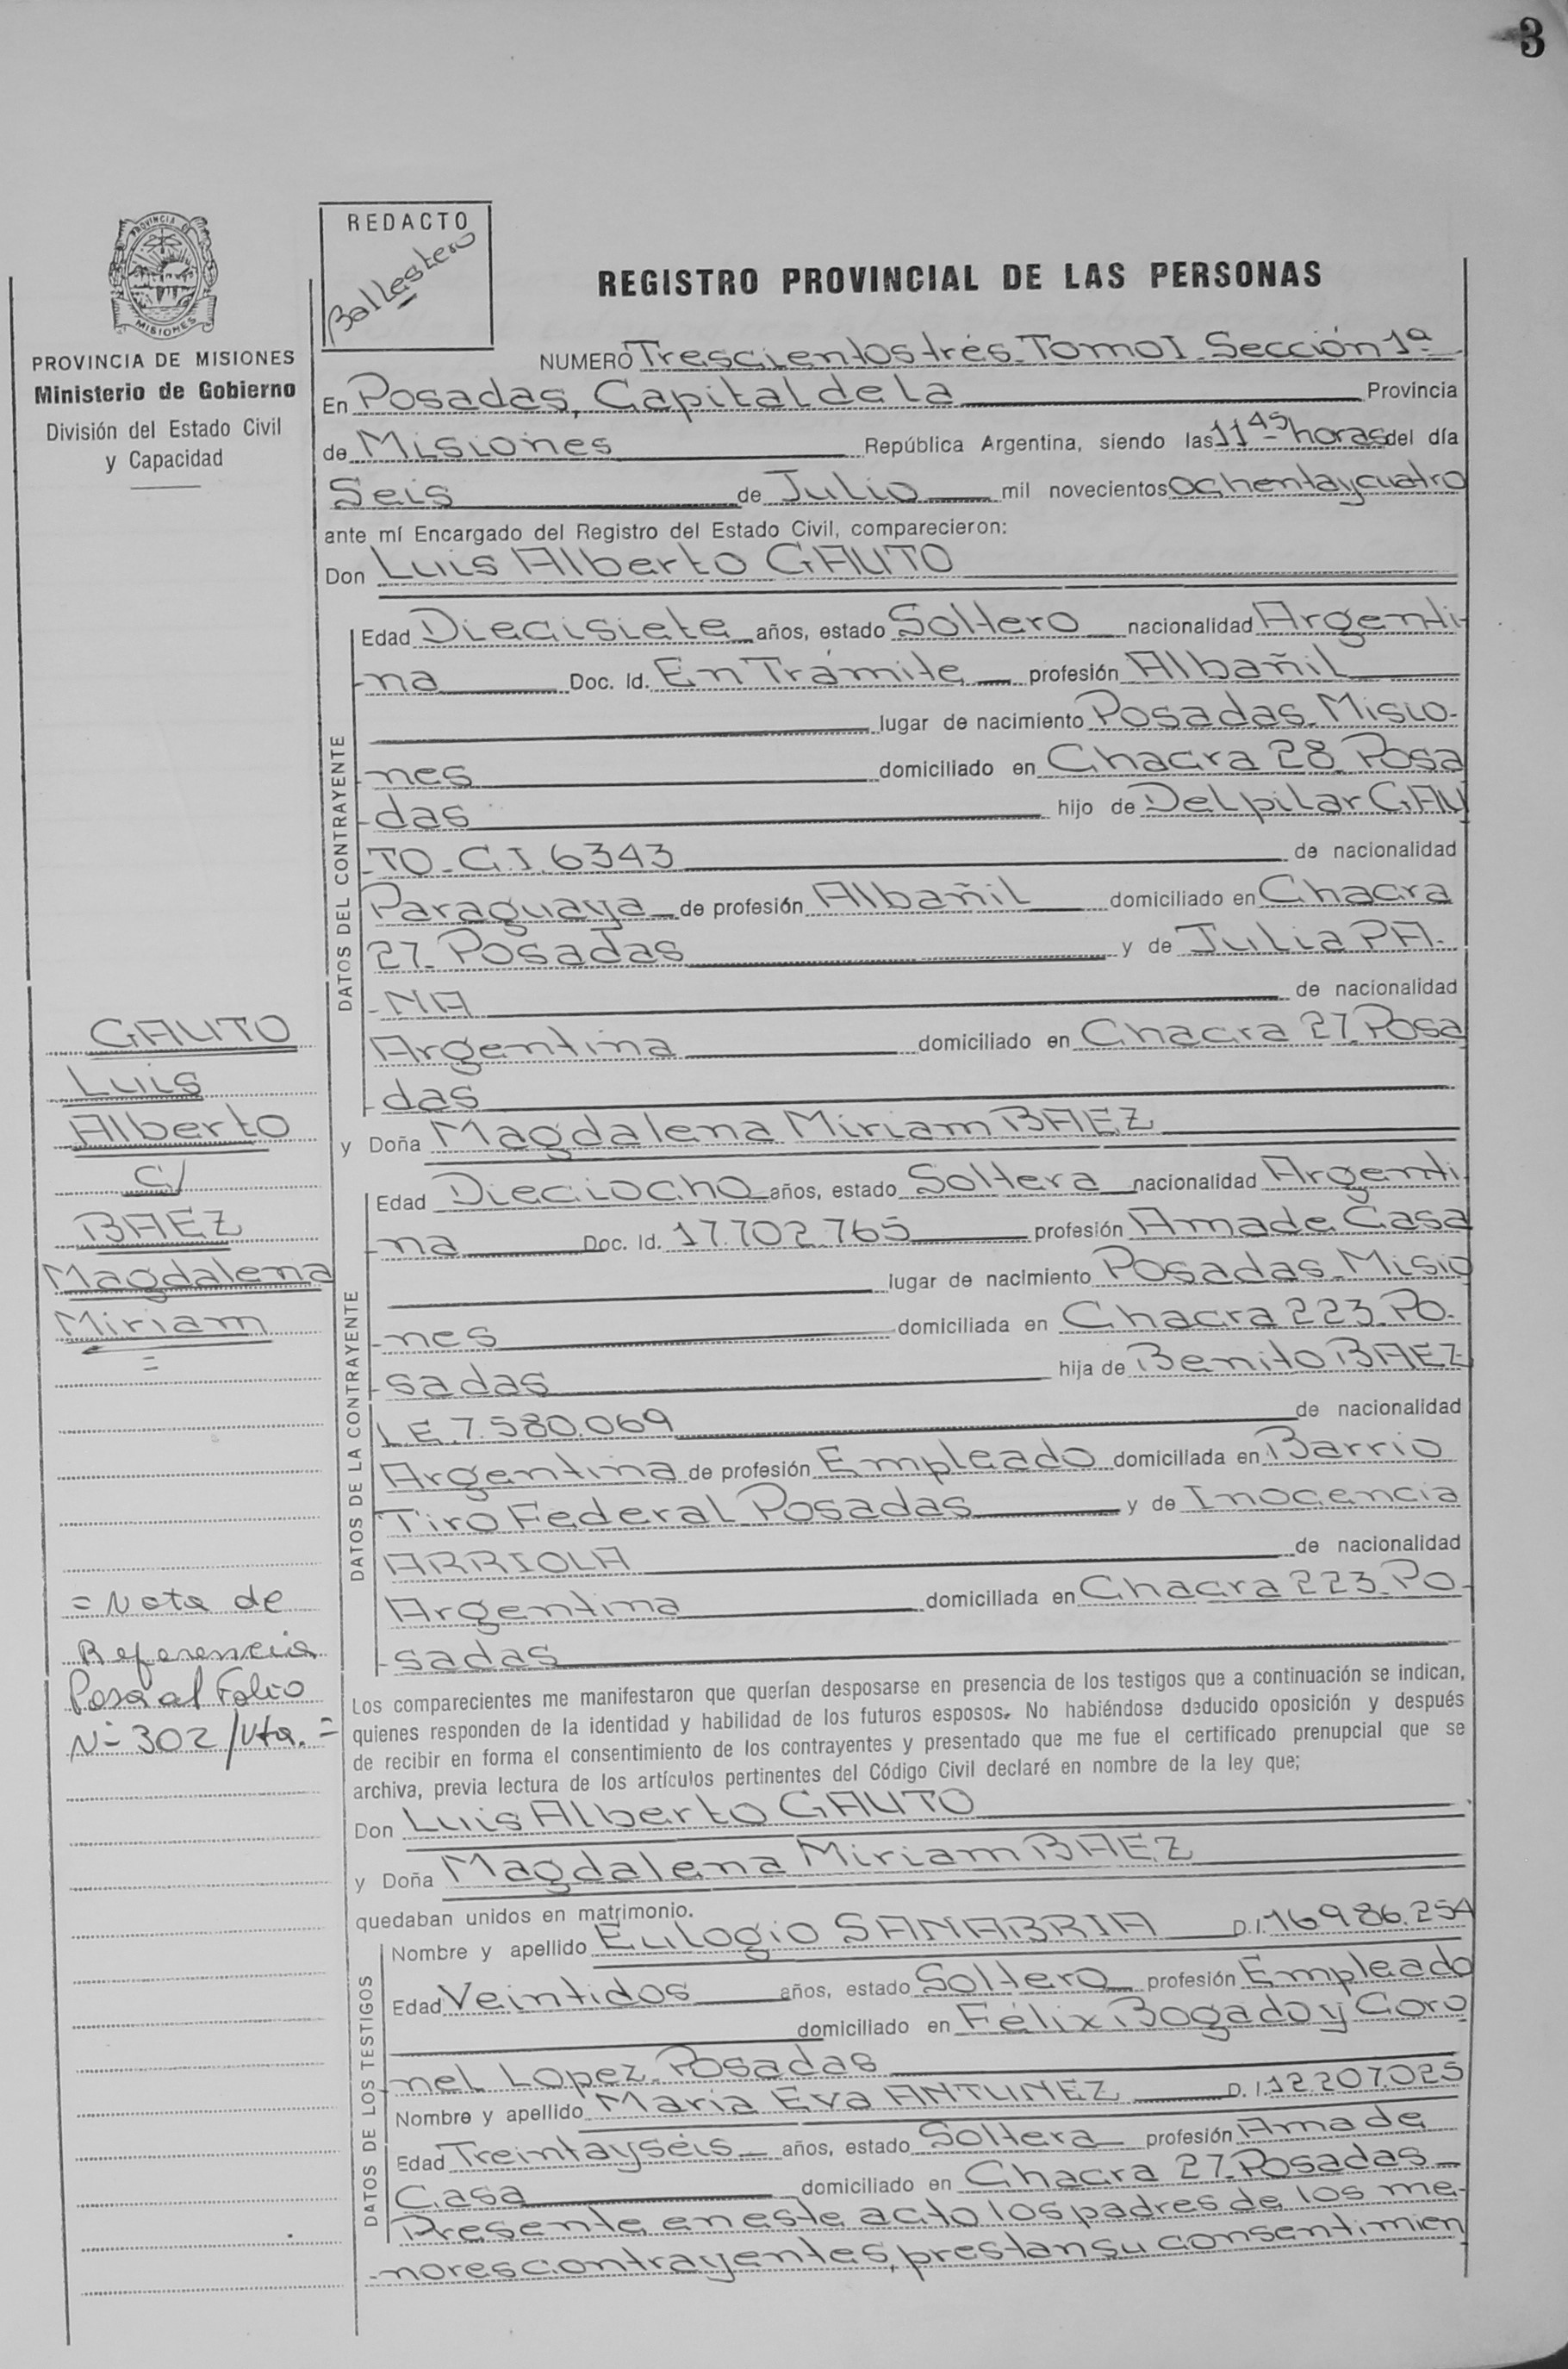 3
PROVINCIA DE
MISIONES
PROVINCIA DE MISIONES
Ministerio de Gobierno
División del Estado Civil
y Capacidad
REDACTO
Ballestero
REGISTRO PROVINCIAL DE LAS PERSONAS
NUMERO Trescientos trés. Tomo I. Sección 1ª
En Posadas, Capital de la Provincia
de Misiones República Argentina, siendo las 11 45 horas del día
Seis de Julio mil novecientos ochenta y cuatro
ante mí Encargado del Registro del Estado Civil, comparecieron:
Don Luis Alberto GAUTO
DATOS DEL CONTRAYENTE
Edad Diecisiete años, estado Soltero nacionalidad Argenti-
-na Doc. Id. En Trámite profesión Albañil
lugar de nacimiento Posadas. Misio-
-nes domiciliado en Chacra 28. Posa
-das hijo de Del pilar GAU
-TO. C.I. 6343 de nacionalidad
Paraguaya de profesión Albañil domiciliado en Chacra
27. Posadas y de Julia PA-
-NA de nacionalidad
Argentina domiciliado en Chacra 27. Posa
-das
y Doña Magdalena Miriam BAEZ
DATOS DE LA CONTRAYENTE
Edad Dieciocho años, estado Soltera nacionalidad Argenti
-na Doc. Id. 17.702.765 profesión Ama de Casa
lugar de nacimiento Posadas. Misio
-nes domiciliada en Chacra 223. Po-
-sadas hija de Benito BAEZ
L.E. 7.580.069 de nacionalidad
Argentina de profesión Empleado domiciliada en Barrio
Tiro Federal Posadas y de Inocencia
ARRIOLA de nacionalidad
Argentina domiciliada en Chacra 223. Po-
-sadas
Los comparecientes me manifestaron que querían desposarse en presencia de los testigos que a continuación se indican,
quienes responden de la identidad y habilidad de los futuros esposos. No habiéndose deducido oposición y después
de recibir en forma el consentimiento de los contrayentes y presentado que me fue el certificado prenupcial que se
archiva, previa lectura de los artículos pertinentes del Código Civil declaré en nombre de la ley que;
Don Luis Alberto GAUTO
y Doña Magdalena Miriam BAEZ
quedaban unidos en matrimonio.
DATOS DE LOS TESTIGOS
Nombre y apellido Eulogio SANABRIA D.I. 16.986.254
Edad Veintidos años, estado Soltero profesión Empleado
domiciliado en Félix Bogado y Coro
-nel Lopez. Posadas
Nombre y apellido Maria Eva ANTUNEZ D.I. 12.207.025
Edad Treinta y séis años, estado Soltera profesión Ama de
Casa domiciliado en Chacra 27. Posadas
Presente en este acto los padres de los me-
-nores contrayentes, prestan su consentimien
GAUTO
Luis
Alberto
C/
BAEZ
Magdalena
Miriam
=
= Nota de
Referencia
Pasa al Folio
Nº 302/Vta. =